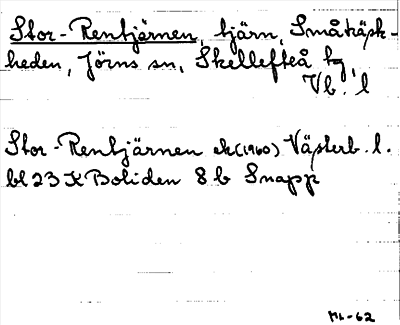 Stor-Rentjärnen, tjärn, Småträsk-
heden, Jörns sn, Skellefteå tg,
Vb. l
Stor-Rentjärnen ek(1960) Västerb. l.
bl 23 K Boliden 8 b Snapp
-62